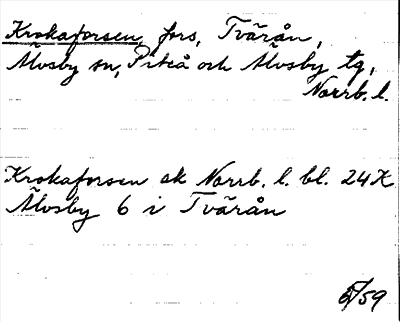 Krokaforsen, fors, Tvärån,
Älvsby sn, Piteå och Älvsby tg,
Norrb. l.
Krokaforsen ek Norrb. l. bl. 24K
Älvsby 6 i Tvärån
/59